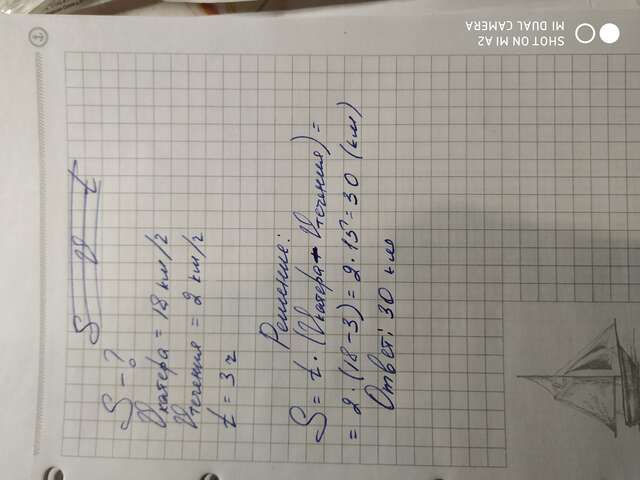 S V t
S - ?
V катера = 18 км/ч
V течения = 2 км/ч
t = 3 ч
Решение:
S = t · (V катера + V течения) =
= 2 · (18 - 3) = 2 · 15 = 30 (км)
Ответ: 30 км
SHOT ON MI A2
MI DUAL CAMERA